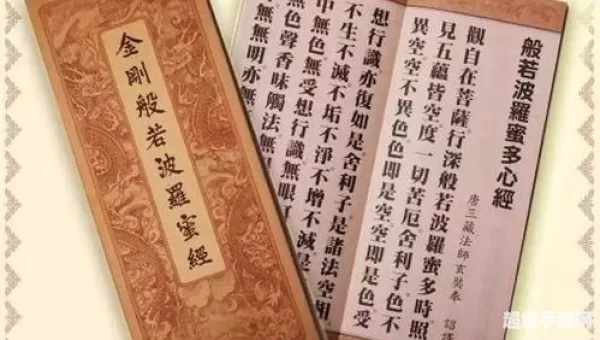 金剛般若波羅蜜經
般若波羅蜜多心經
唐三藏法師玄奘奉 詔譯
觀自在菩薩行深般若波羅蜜多時照
見五蘊皆空度一切苦厄舍利子色不
異空空不異色色即是空空即是色受
想行識亦復如是舍利子是諸法空相
不生不滅不垢不淨不增不減是
中無色無受想行識無眼
無色聲香味觸法無
無無明亦無